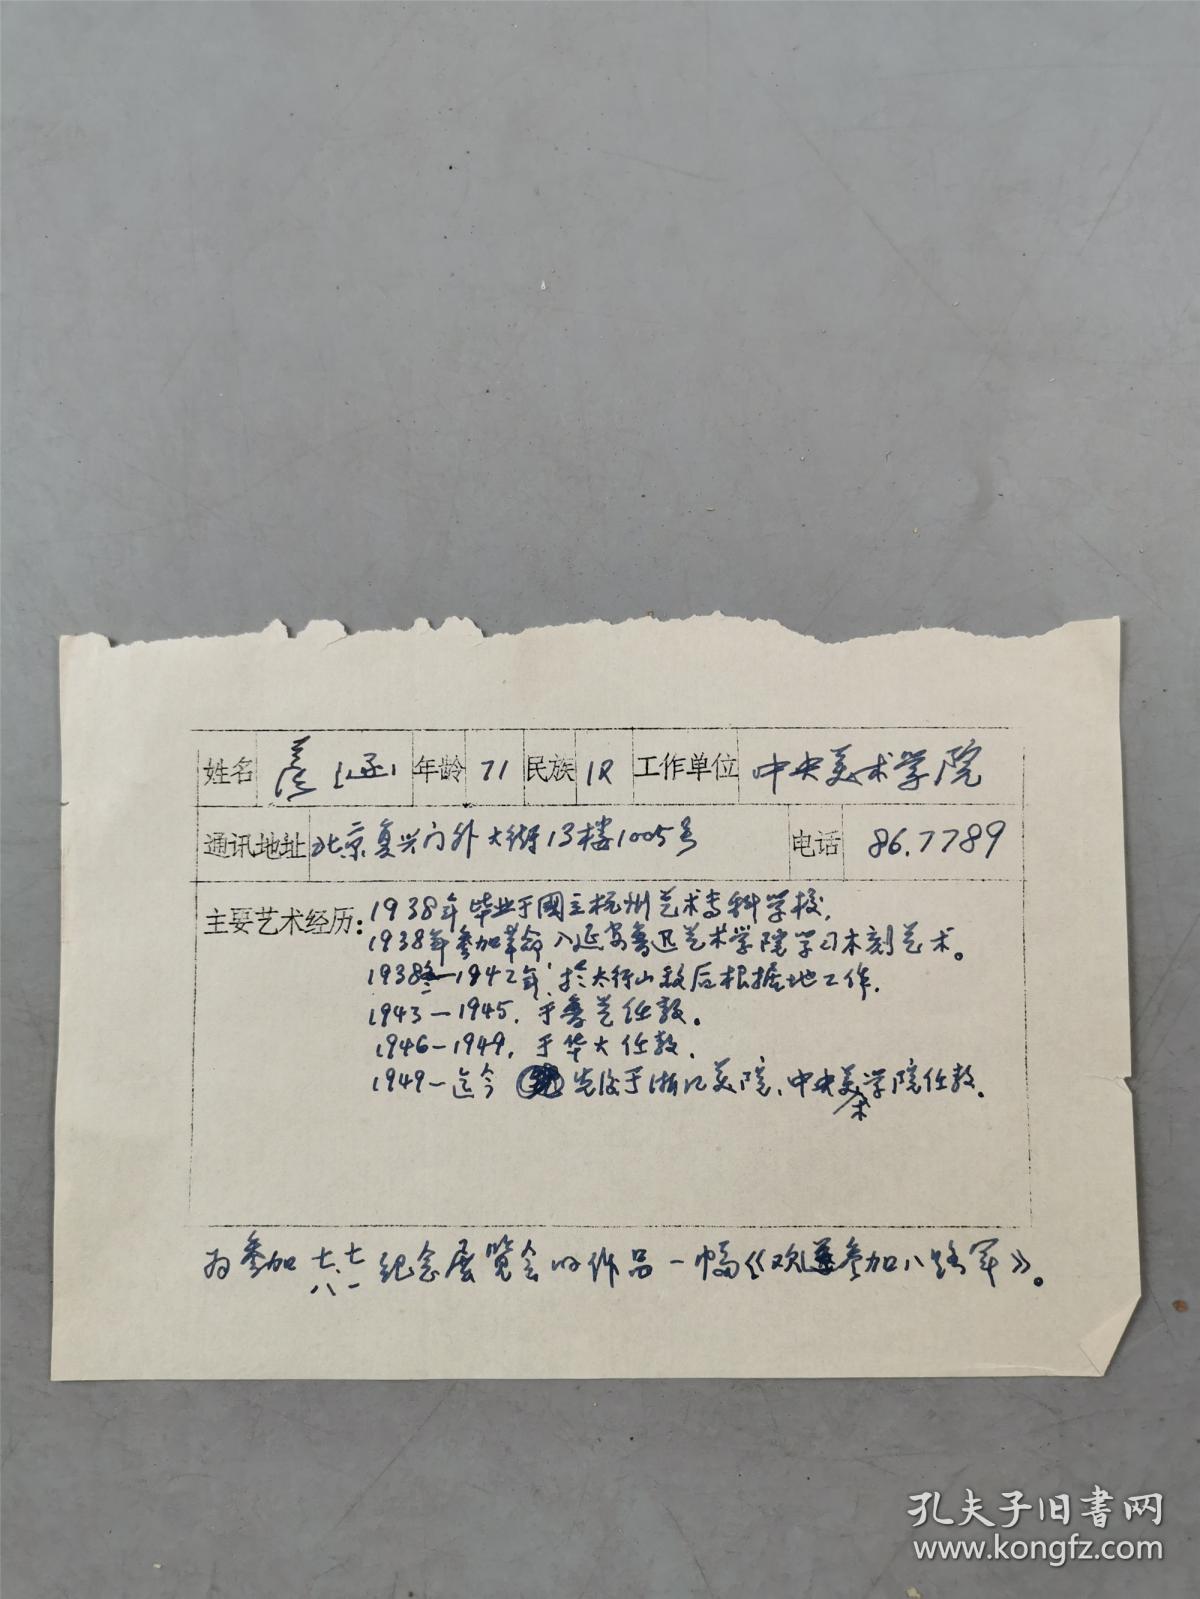 姓名 彦涵 年龄 71 民族 汉 工作单位 中央美术学院
通讯地址 北京复兴门外大街13楼1005号 电话 86.7789
主要艺术经历: 1938年毕业于國立杭州艺术专科学校.
1938年参加革命入延安鲁迅艺术学院学习木刻艺术。
1938冬—1942年, 於太行山敌后根据地工作.
1943—1945. 于鲁艺任教。
1946—1949. 于华大任教.
1949—迄今 先后于浙江美院、中央美术学院任教.
为参加七.七 八一纪念展览会的作品一幅《欢送参加八路军》。
孔夫子旧書网
www.kongfz.com